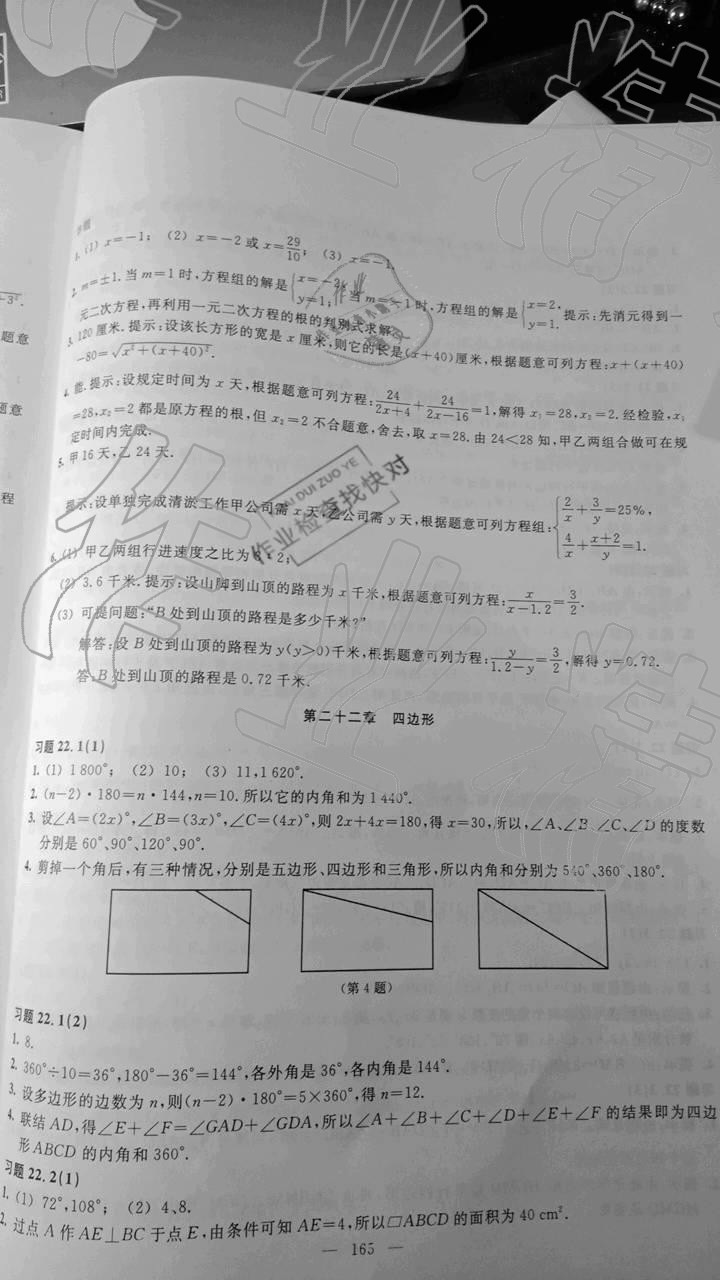 1. (1) x=-1; (2) x=-2或x=29/10; (3) x=-1.
2. m=±1.当m=1时,方程组的解是{x=-2, y=1; 当m=-1时,方程组的解是{x=2, y=1. 提示:先消元得到一
元二次方程,再利用一元二次方程的根的判别式求解.
3. 120厘米.提示:设该长方形的宽是x厘米,则它的长是(x+40)厘米,根据题意可列方程:x+(x+40)
-80=√(x²+(x+40)²).
4. 能.提示:设规定时间为x天,根据题意可列方程:24/(2x+4)+24/(2x-16)=1,解得x₁=28,x₂=2.经检验,x₁
=28,x₂=2都是原方程的根,但x₂=2不合题意,舍去,取x=28.由24<28知,甲乙两组合做可在规
定时间内完成.
5. 甲16天,乙24天.
提示:设单独完成清淤工作甲公司需x天,乙公司需y天,根据题意可列方程组:{2/x+3/y=25%, 4/x+(x+2)/y=1.
6. (1) 甲乙两组行进速度之比为3:2;
(2) 3.6千米.提示:设山脚到山顶的路程为x千米,根据题意可列方程:x/(x-1.2)=3/2.
(3) 可提问题:“B处到山顶的路程是多少千米?”
解答:设B处到山顶的路程为y(y>0)千米,根据题意可列方程:y/(1.2-y)=3/2,解得y=0.72.
答:B处到山顶的路程是0.72千米.
第二十二章 四边形
习题22.1(1)
1. (1) 1 800°; (2) 10; (3) 11,1 620°.
2. (n-2)·180=n·144,n=10.所以它的内角和为1 440°.
3. 设∠A=(2x)°,∠B=(3x)°,∠C=(4x)°,则2x+4x=180,得x=30,所以,∠A、∠B、∠C、∠D的度数
分别是60°、90°、120°、90°.
4. 剪掉一个角后,有三种情况,分别是五边形、四边形和三角形,所以内角和分别为540°、360°、180°.
(第4题)
习题22.1(2)
1. 8.
2. 360°÷10=36°,180°-36°=144°,各外角是36°,各内角是144°.
3. 设多边形的边数为n,则(n-2)·180°=5×360°,得n=12.
4. 联结AD,得∠E+∠F=∠GAD+∠GDA,所以∠A+∠B+∠C+∠D+∠E+∠F的结果即为四边
形ABCD的内角和360°.
习题22.2(1)
1. (1) 72°,108°; (2) 4、8.
2. 过点A作AE⊥BC于点E,由条件可知AE=4,所以□ABCD的面积为40 cm².
— 165 —
作业检查找快对